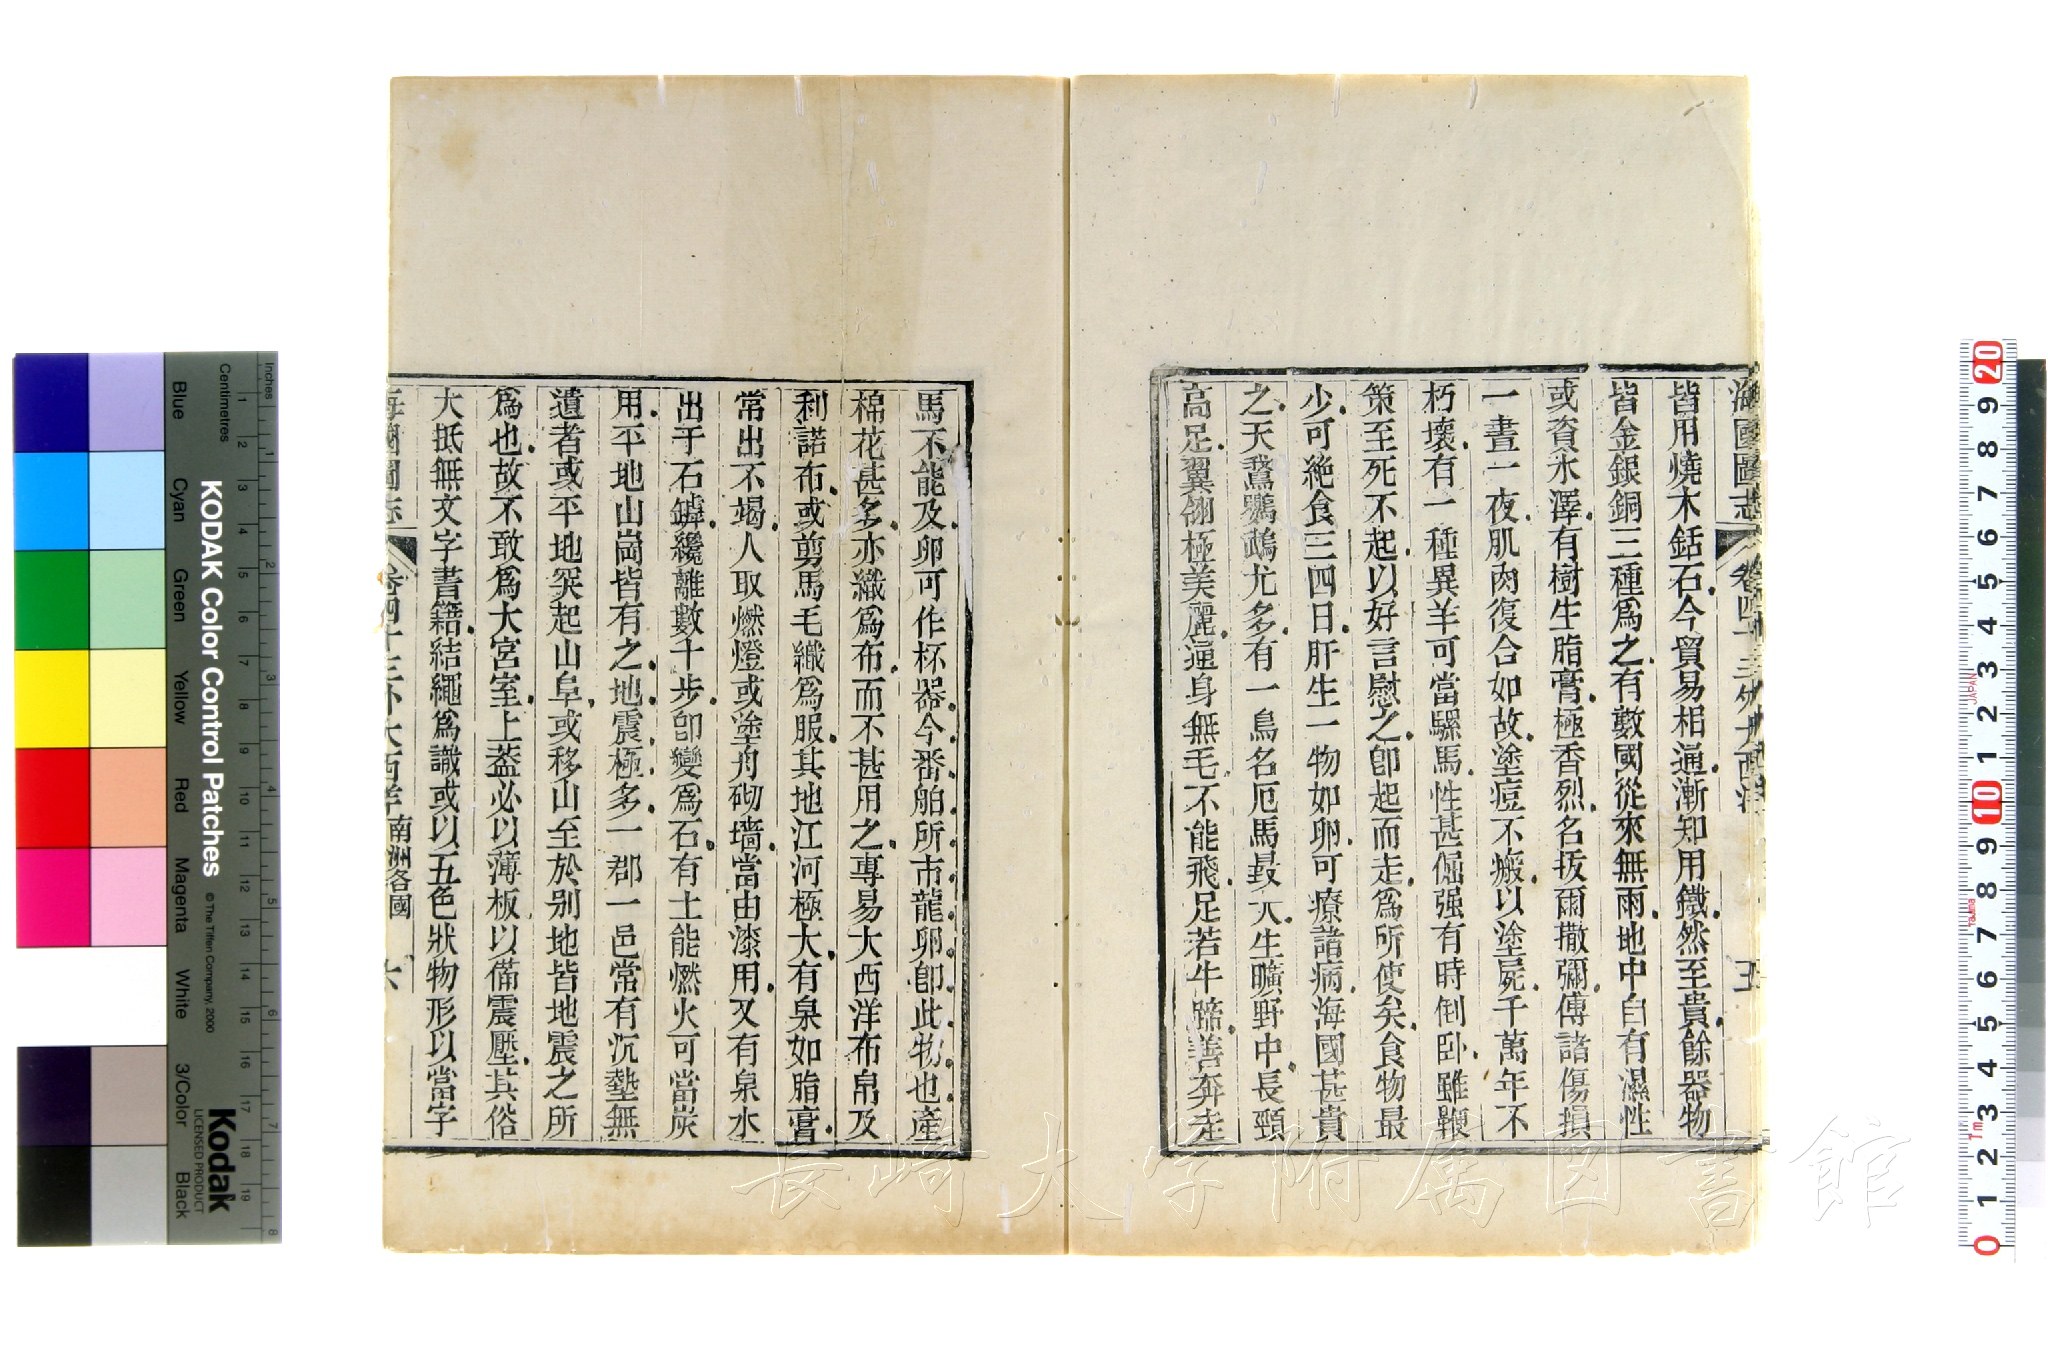 海國圖志 卷四十三外大西洋 五
皆用燒木銛石今貿易相通漸知用鐵然至貴餘器物
皆金銀銅三種爲之有數國從來無雨地中自有濕性
或資水澤有樹生脂膏極香烈名拔爾撒彌傅諸傷損
一晝一夜肌肉復合如故塗痘不瘢以塗屍千萬年不
朽壞有一種異羊可當騾馬性甚倔强有時倒卧雖鞭
策至死不起以好言慰之卽起而走爲所使矣食物最
少可絶食三四日肝生一物如卵可療諸病海國甚貴
之天鵞鸚鵡尤多有一鳥名厄馬最大生曠野中長頸
高足翼翎極美麗通身無毛不能飛足若牛蹄善奔走
馬不能及卵可作杯器今番舶所市龍卵卽此物也產
棉花甚多亦織爲布而不甚用之專易大西洋布帛及
利諾布或剪馬毛織爲服其地江河極大有泉如脂膏
常出不竭人取燃燈或塗舟砌墻當由漆用又有泉水
出于石罅纔離數十步卽變爲石有土能燃火可當炭
用平地山崗皆有之地震極多一郡一邑常有沉墊無
遺者或平地突起山阜或移山至於别地皆地震之所
爲也故不敢爲大宮室上葢必以薄板以備震壓其俗
大抵無文字書籍結繩爲識或以五色狀物形以當字
海國圖志 卷四十三外大西洋 南洲各國 六
長崎大学附属図書館
KODAK Color Control Patches
© The Tiffen Company, 2000
Kodak
LICENSED PRODUCT
Inches
Centimetres
Blue Cyan Green Yellow Red Magenta White 3/Color Black
1 2 3 4 5 6 7 8 9 10 11 12 13 14 15 16 17 18 19
1 2 3 4 5 6 7 8
20 9 8 7 6 5 4 3 2 1 10 9 8 7 6 5 4 3 2 1 0
JAPAN